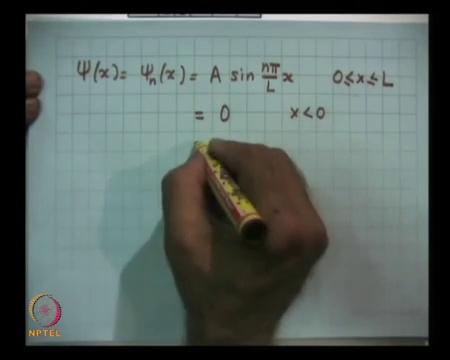 Ψ(x) = Ψn(x) = A sin nπ/L x 0≤x≤L
= 0 x<0
NPTEL